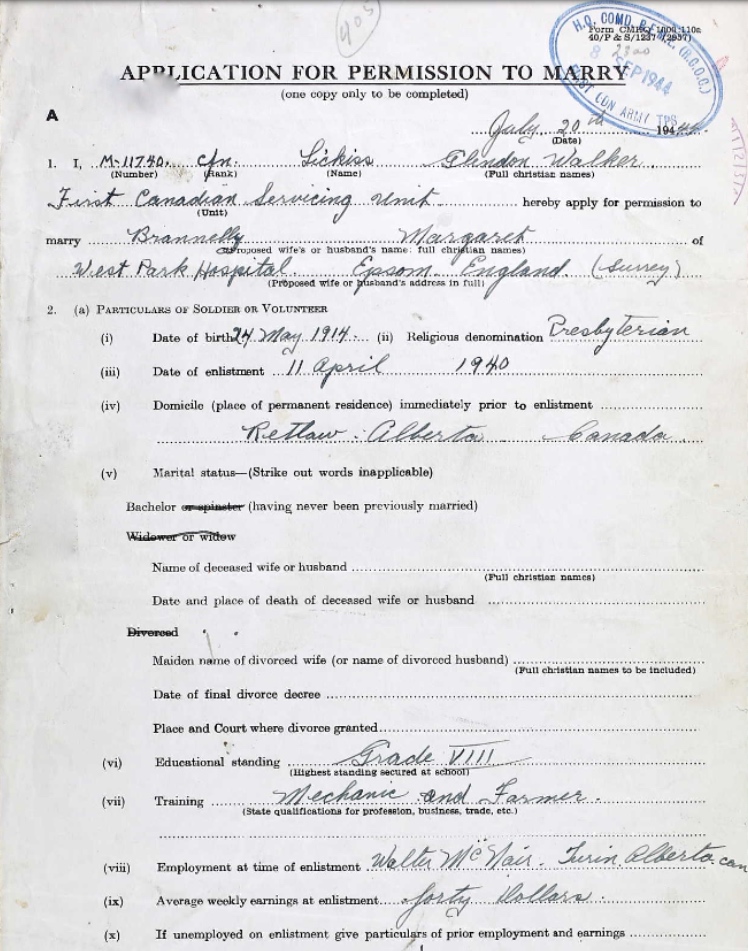 405
Form CMHQ 1000-110a
40/P & S/1237 (2937)
H.Q. COMD. R.E.M.E. (R.C.O.C.)
8 SEP 1944
CDN ARMY TPS
2300
APPLICATION FOR PERMISSION TO MARRY
(one copy only to be completed)
A
July 20th 1944
(Date)
1. I, M-11740. Cfn. Lickiss Glindon Walker
(Number) (Rank) (Name) (Full christian names)
First Canadian Servicing Unit hereby apply for permission to
(Unit)
marry Brannelly Margaret of
(Proposed wife's or husband's name: full christian names)
West Park Hospital. Epsom England (Surrey)
(Proposed wife or husband's address in full)
2. (a) PARTICULARS OF SOLDIER OR VOLUNTEER
(i) Date of birth 24 May 1914. (ii) Religious denomination Presbyterian
(iii) Date of enlistment 11 April 1940
(iv) Domicile (place of permanent residence) immediately prior to enlistment
Retlaw. Alberta Canada.
(v) Marital status—(Strike out words inapplicable)
Bachelor or spinster (having never been previously married)
Widower or widow
Name of deceased wife or husband
(Full christian names)
Date and place of death of deceased wife or husband
Divorced
Maiden name of divorced wife (or name of divorced husband)
(Full christian names to be included)
Date of final divorce decree
Place and Court where divorce granted
(vi) Educational standing Grade VIII
(Highest standing secured at school)
(vii) Training Mechanic and Farmer.
(State qualifications for profession, business, trade, etc.)
(viii) Employment at time of enlistment Walter McNair. Turin. Alberta. can
(ix) Average weekly earnings at enlistment forty Dollars.
(x) If unemployed on enlistment give particulars of prior employment and earnings